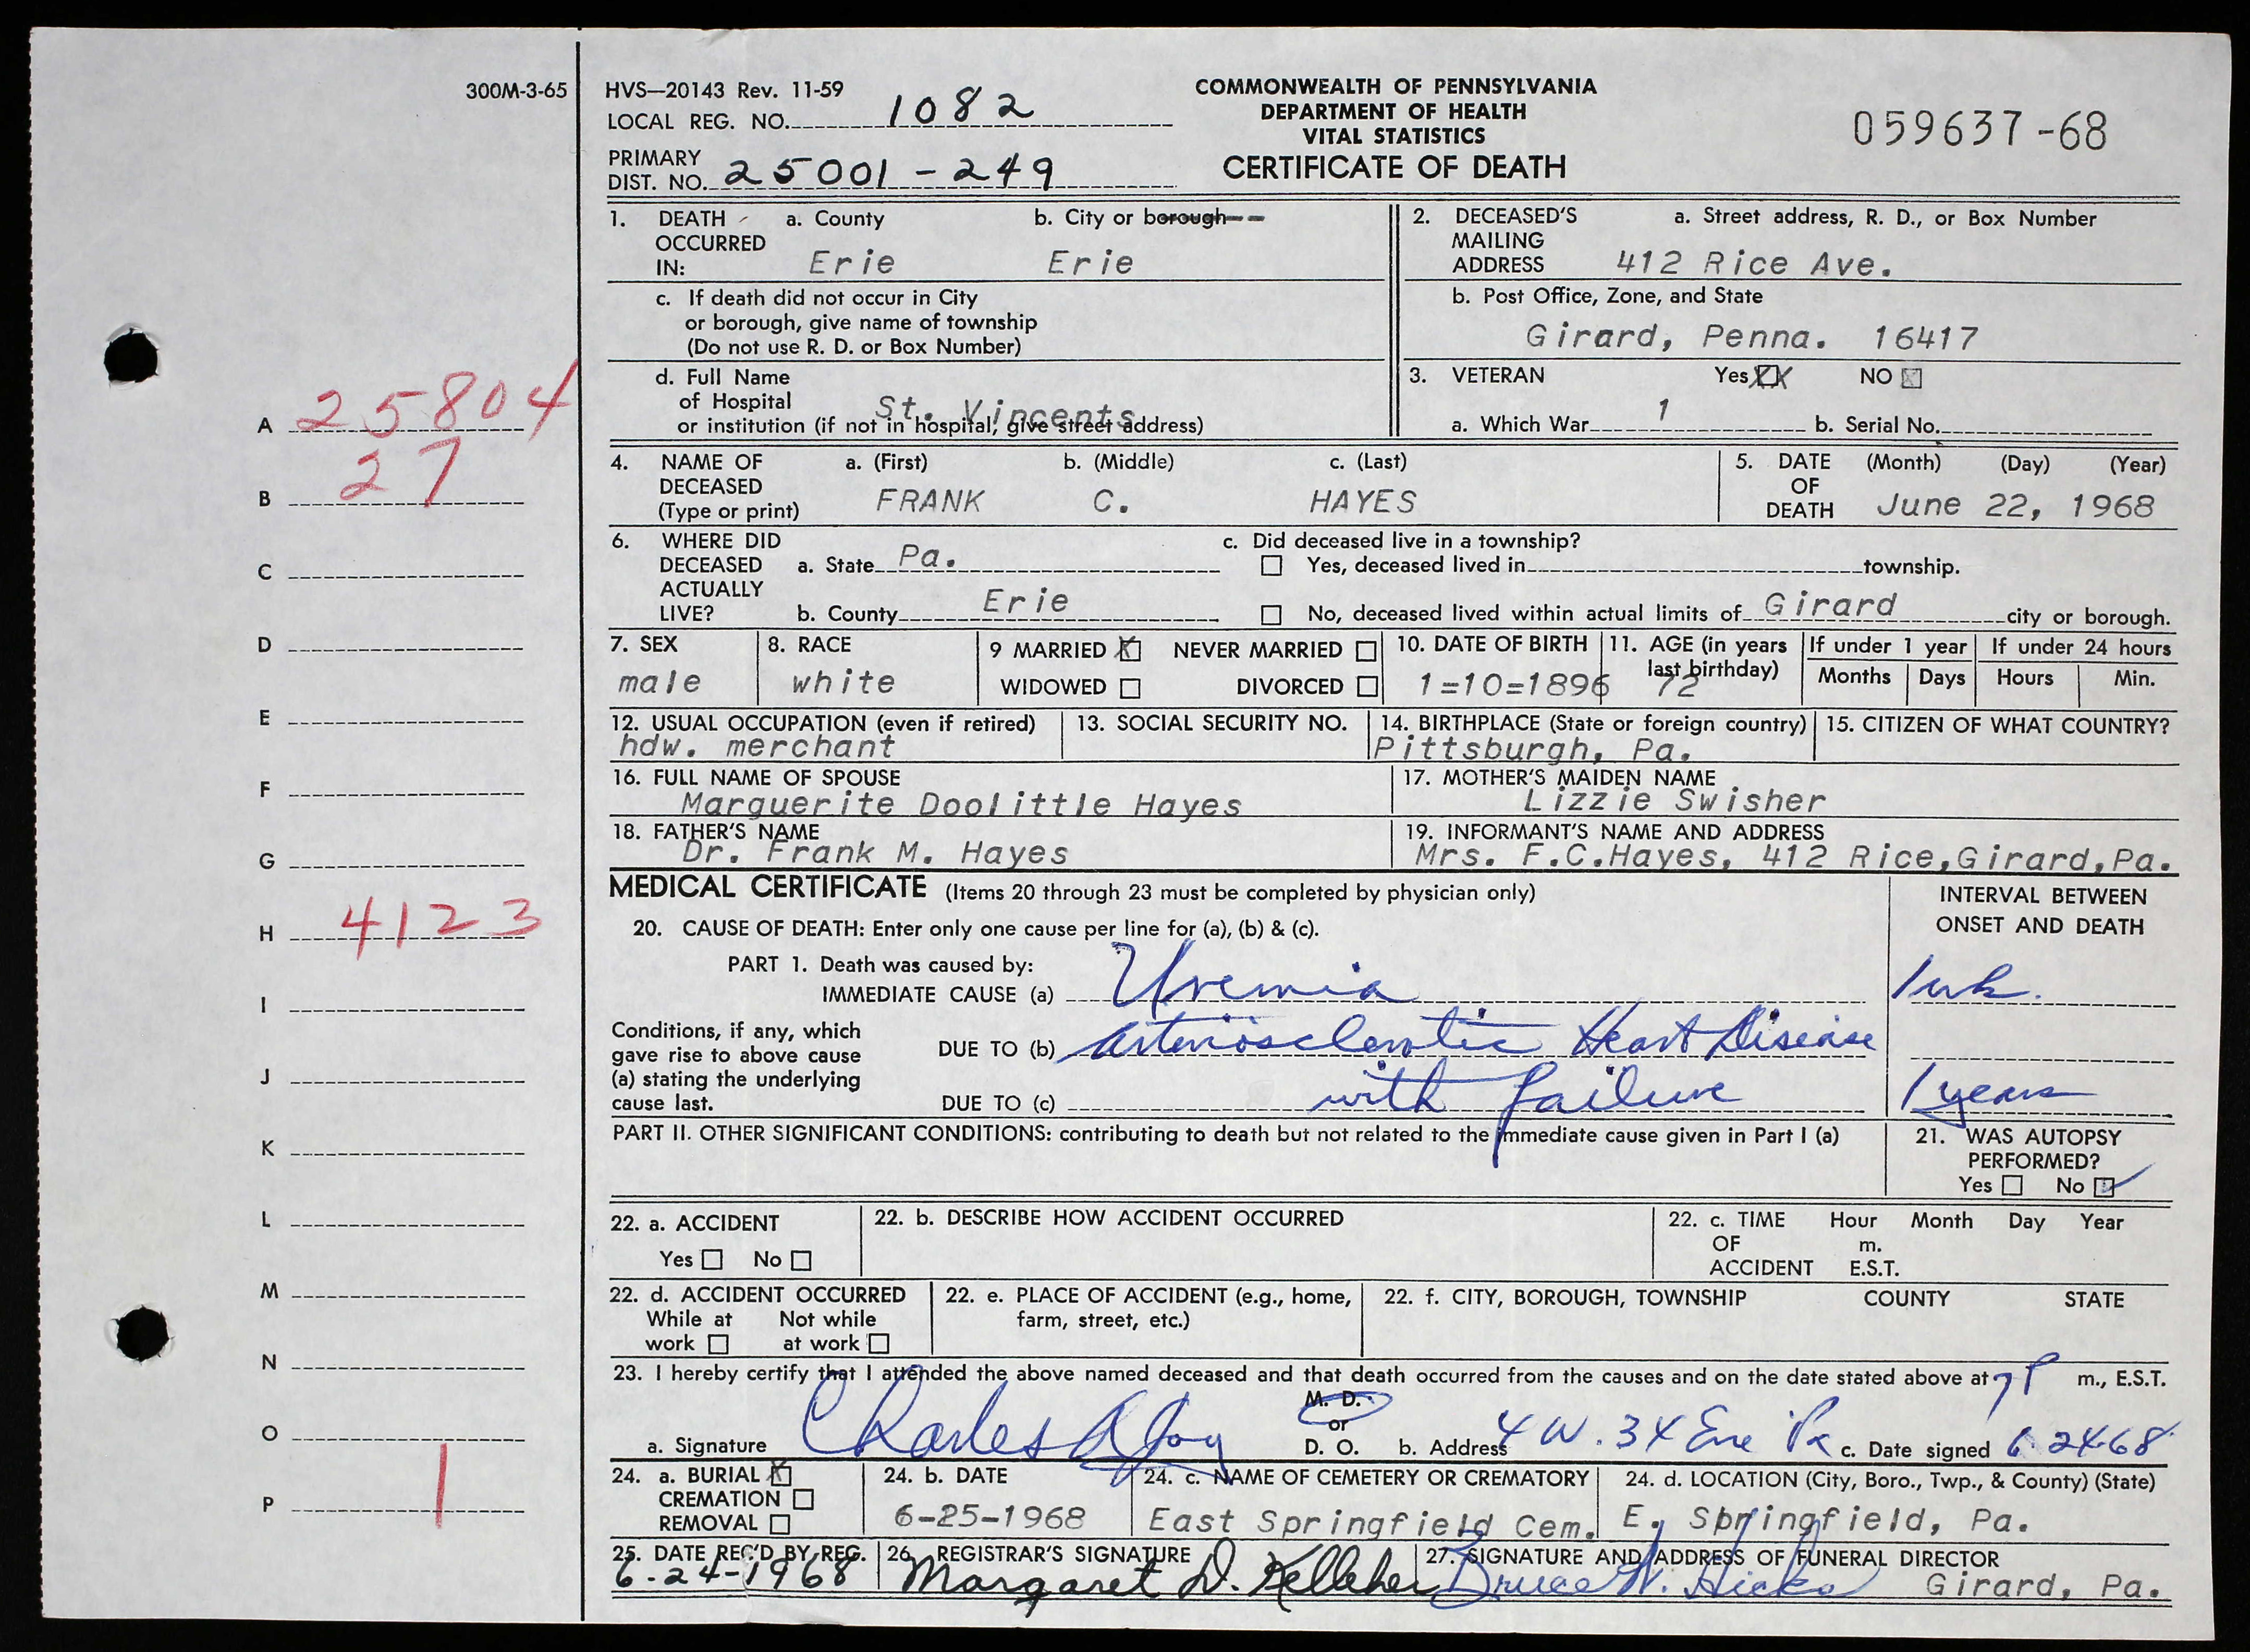 300M-3-65
HVS—20143 Rev. 11-59
LOCAL REG. NO. 1082
PRIMARY
DIST. NO. 25001-249
COMMONWEALTH OF PENNSYLVANIA
DEPARTMENT OF HEALTH
VITAL STATISTICS
CERTIFICATE OF DEATH
059637-68
1. DEATH a. County b. City or borough
OCCURRED
IN: Erie Erie
c. If death did not occur in City
or borough, give name of township
(Do not use R. D. or Box Number)
d. Full Name
of Hospital St. Vincents
or institution (if not in hospital, give street address)
2. DECEASED'S a. Street address, R. D., or Box Number
MAILING
ADDRESS 412 Rice Ave.
b. Post Office, Zone, and State
Girard, Penna. 16417
3. VETERAN Yes XX NO
a. Which War 1 b. Serial No.
4. NAME OF a. (First) b. (Middle) c. (Last)
DECEASED
(Type or print) FRANK C. HAYES
5. DATE (Month) (Day) (Year)
OF
DEATH June 22, 1968
6. WHERE DID
DECEASED a. State Pa.
ACTUALLY
LIVE? b. County Erie
c. Did deceased live in a township?
Yes, deceased lived in township.
No, deceased lived within actual limits of Girard city or borough.
7. SEX
male
8. RACE
white
9 MARRIED X NEVER MARRIED
WIDOWED DIVORCED
10. DATE OF BIRTH
1=10=1896
11. AGE (in years
last birthday)
72
If under 1 year
Months Days
If under 24 hours
Hours Min.
12. USUAL OCCUPATION (even if retired)
hdw. merchant
13. SOCIAL SECURITY NO.
14. BIRTHPLACE (State or foreign country)
Pittsburgh, Pa.
15. CITIZEN OF WHAT COUNTRY?
16. FULL NAME OF SPOUSE
Marguerite Doolittle Hayes
17. MOTHER'S MAIDEN NAME
Lizzie Swisher
18. FATHER'S NAME
Dr. Frank M. Hayes
19. INFORMANT'S NAME AND ADDRESS
Mrs. F.C.Hayes, 412 Rice,Girard,Pa.
MEDICAL CERTIFICATE (Items 20 through 23 must be completed by physician only)
INTERVAL BETWEEN
ONSET AND DEATH
20. CAUSE OF DEATH: Enter only one cause per line for (a), (b) & (c).
PART 1. Death was caused by:
IMMEDIATE CAUSE (a) Uremia 1 wk.
Conditions, if any, which
gave rise to above cause
(a) stating the underlying
cause last.
DUE TO (b) Arteriosclerotic Heart Disease
DUE TO (c) with failure 1 years
PART II. OTHER SIGNIFICANT CONDITIONS: contributing to death but not related to the immediate cause given in Part I (a)
21. WAS AUTOPSY
PERFORMED?
Yes No
22. a. ACCIDENT
Yes No
22. b. DESCRIBE HOW ACCIDENT OCCURRED
22. c. TIME Hour Month Day Year
OF m.
ACCIDENT E.S.T.
22. d. ACCIDENT OCCURRED
While at Not while
work at work
22. e. PLACE OF ACCIDENT (e.g., home,
farm, street, etc.)
22. f. CITY, BOROUGH, TOWNSHIP COUNTY STATE
23. I hereby certify that I attended the above named deceased and that death occurred from the causes and on the date stated above at 7P m., E.S.T.
M. D.
or
D. O.
a. Signature Charles A Joy b. Address 4 W. 34 Erie Pa c. Date signed 6-24-68
24. a. BURIAL X
CREMATION
REMOVAL
24. b. DATE
6-25-1968
24. c. NAME OF CEMETERY OR CREMATORY
East Springfield Cem.
24. d. LOCATION (City, Boro., Twp., & County) (State)
E. Springfield, Pa.
25. DATE REC'D BY REG.
6-24-1968
26. REGISTRAR'S SIGNATURE
Margaret D. Kelleher
27. SIGNATURE AND ADDRESS OF FUNERAL DIRECTOR
Bruce W. Hicks Girard, Pa.
A 25804
B 27
C
D
E
F
G
H 4123
I
J
K
L
M
N
O
P 1